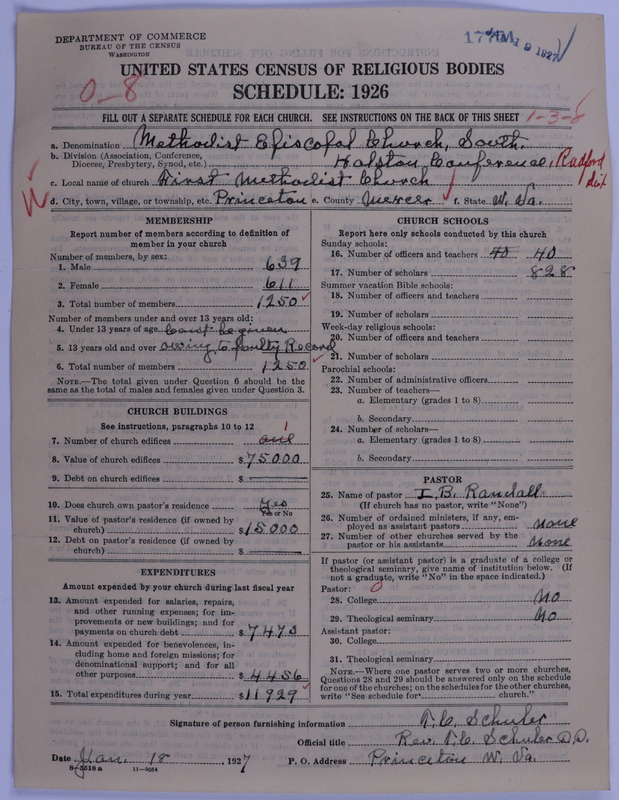 DEPARTMENT OF COMMERCE
BUREAU OF THE CENSUS
WASHINGTON
UNITED STATES CENSUS OF RELIGIOUS BODIES
SCHEDULE: 1926
0-8
FILL OUT A SEPARATE SCHEDULE FOR EACH CHURCH. SEE INSTRUCTIONS ON THE BACK OF THIS SHEET
1-3-8
a. Denomination Methodist Episcopal Church, South.
b. Division (Association, Conference, Diocese, Presbytery, Synod, etc.) Holston Conference, Radford dist
c. Local name of church First Methodist Church
d. City, town, village, or township, etc. Princeton e. County Mercer f. State W. Va.
MEMBERSHIP
Report number of members according to definition of member in your church
Number of members, by sex:
1. Male 639
2. Female 611
3. Total number of members 1250
Number of members under and over 13 years old:
4. Under 13 years of age Cant be given
5. 13 years old and over owing to faulty Record
6. Total number of members 1250
NOTE.—The total given under Question 6 should be the same as the total of males and females given under Question 3.
CHURCH BUILDINGS
See instructions, paragraphs 10 to 12
7. Number of church edifices one 1
8. Value of church edifices $75000
9. Debt on church edifices $
10. Does church own pastor's residence Yes
Yes or No
11. Value of pastor's residence (if owned by church) $15000
12. Debt on pastor's residence (if owned by church) $
EXPENDITURES
Amount expended by your church during last fiscal year
13. Amount expended for salaries, repairs, and other running expenses; for improvements or new buildings; and for payments on church debt $7473
14. Amount expended for benevolences, including home and foreign missions; for denominational support; and for all other purposes $4456
15. Total expenditures during year $11929
CHURCH SCHOOLS
Report here only schools conducted by this church
Sunday schools:
16. Number of officers and teachers 40 40
17. Number of scholars 828
Summer vacation Bible schools:
18. Number of officers and teachers
19. Number of scholars
Week-day religious schools:
20. Number of officers and teachers
21. Number of scholars
Parochial schools:
22. Number of administrative officers
23. Number of teachers—
a. Elementary (grades 1 to 8)
b. Secondary
24. Number of scholars—
a. Elementary (grades 1 to 8)
b. Secondary
PASTOR
25. Name of pastor I. B. Randall
(If church has no pastor, write "None")
26. Number of ordained ministers, if any, employed as assistant pastors None
27. Number of other churches served by the pastor or his assistants None
If pastor (or assistant pastor) is a graduate of a college or theological seminary, give name of institution below. (If not a graduate, write "No" in the space indicated.)
Pastor: 0
28. College No
29. Theological seminary No
Assistant pastor:
30. College
31. Theological seminary
NOTE.—Where one pastor serves two or more churches, Questions 28 and 29 should be answered only on the schedule for one of the churches; on the schedules for the other churches, write "See schedule for church."
Signature of person furnishing information T. C. Schuler
Official title Rev. T. C. Schuler D.D.
Date Jan. 18, 1927 P. O. Address Princeton W. Va.
8-5518a 11-9054